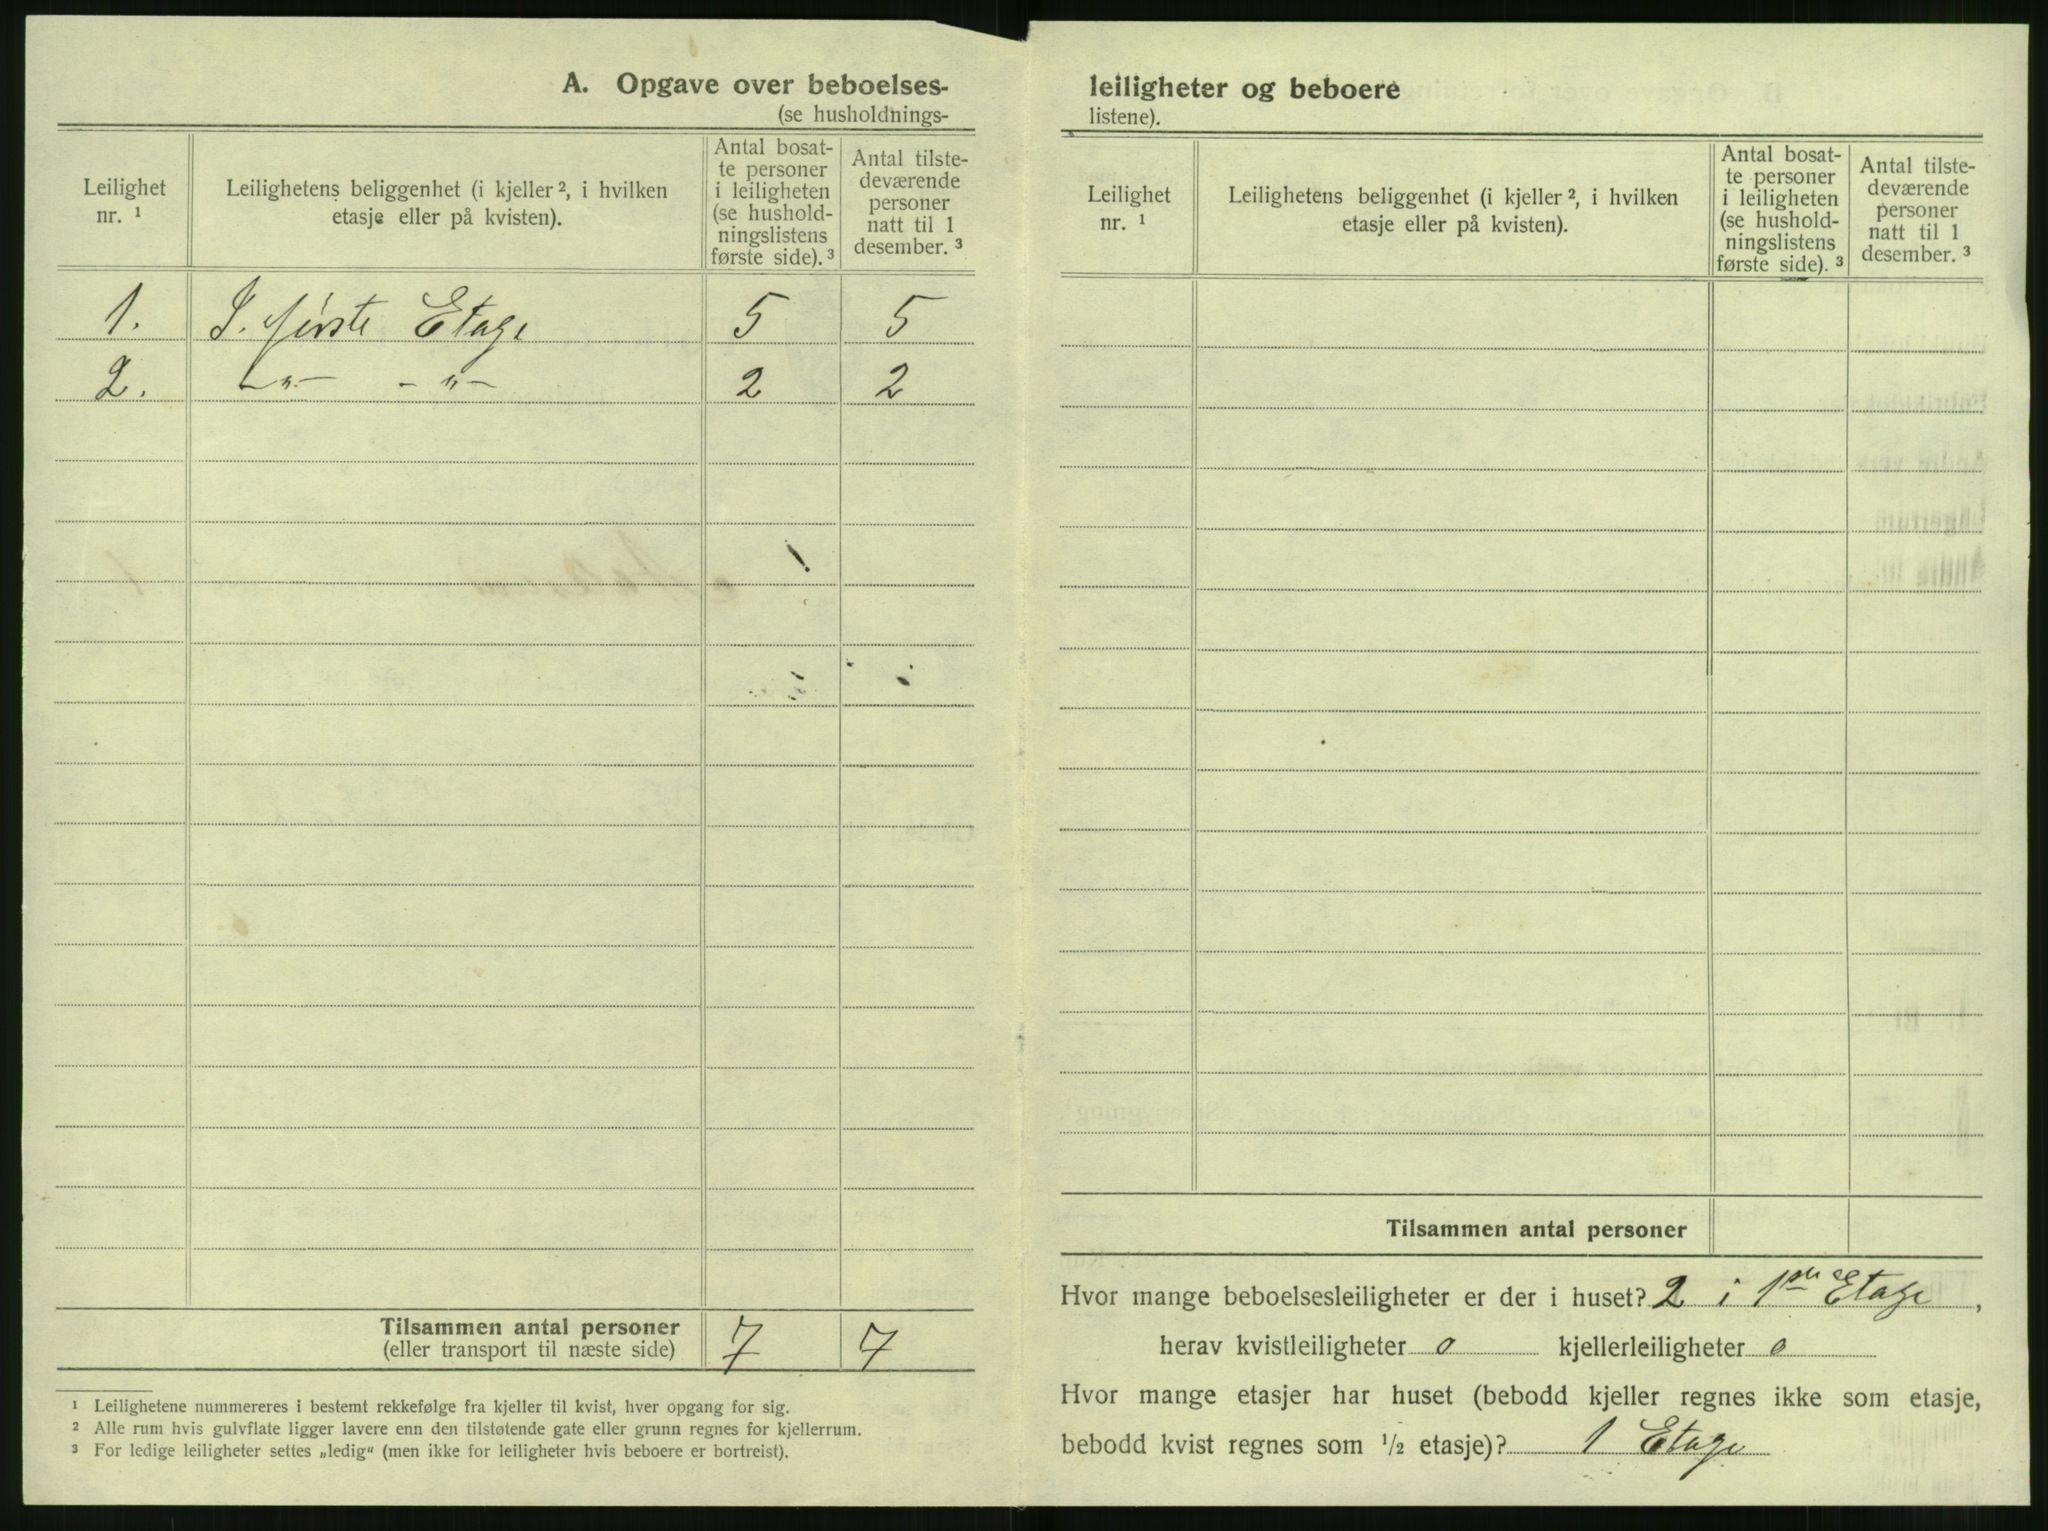 A. Opgave over beboelses-
(se husholdnings-
Leilighet
nr. 1
Leilighetens beliggenhet (i kjeller 2, i hvilken
etasje eller på kvisten).
Antal bosat-
te personer
i leiligheten
(se hushold-
ningslistens
første side). 3
Antal tilste-
deværende
personer
natt til 1
desember. 3
1. I. første Etage 5 5
2. -„- -„- 2 2
Tilsammen antal personer 7 7
(eller transport til næste side)
1 Leilighetene nummereres i bestemt rekkefølge fra kjeller til kvist, hver opgang for sig.
2 Alle rum hvis gulvflate ligger lavere enn den tilstøtende gate eller grunn regnes for kjellerrum.
3 For ledige leiligheter settes „ledig“ (men ikke for leiligheter hvis beboere er bortreist).
leiligheter og beboere
listene).
Leilighet
nr. 1
Leilighetens beliggenhet (i kjeller 2, i hvilken
etasje eller på kvisten).
Antal bosat-
te personer
i leiligheten
(se hushold-
ningslistens
første side). 3
Antal tilste-
deværende
personer
natt til 1
desember. 3
Tilsammen antal personer
Hvor mange beboelsesleiligheter er der i huset? 2 i Etage,
herav kvistleiligheter 0 kjellerleiligheter 0
Hvor mange etasjer har huset (bebodd kjeller regnes ikke som etasje,
bebodd kvist regnes som 1/2 etasje)? 1 Etage